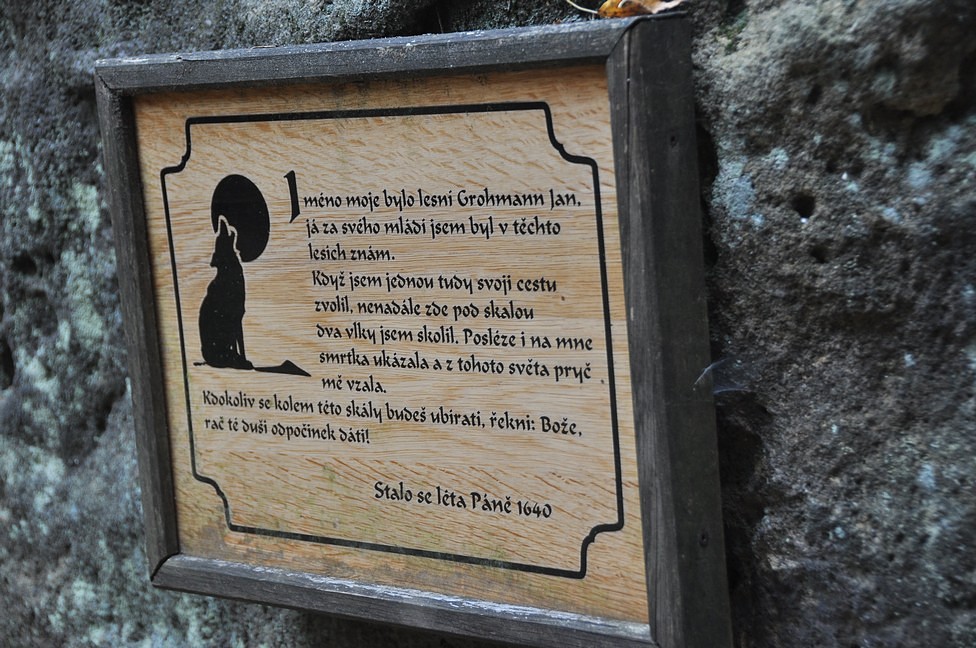 Jméno moje bylo lesní Grohmann Jan,
já za svého mládí jsem byl v těchto
lesích znám.
Když jsem jednou tudy svoji cestu
zvolil, nenadále zde pod skalou
dva vlky jsem skolil. Posléze i na mne
smrtka ukázala a z tohoto světa pryč
mě vzala.
Kdokoliv se kolem této skály budeš ubírati, řekni: Bože,
rač té duši odpočinek dáti!
Stalo se léta Páně 1640